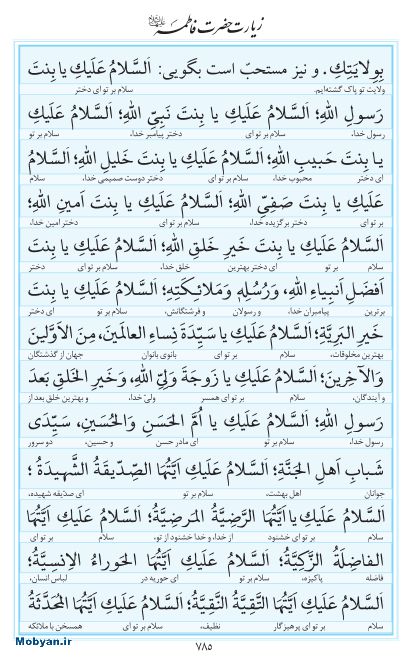 زیارت حضرت فاطمه علیها السلام
بِوِلایَتِکِ. و نیز مستحبّ است بگویی: اَلسَّلامُ عَلَیکِ یا بِنتَ
ولایت تو پاک گشته‌ایم. سلام بر تو ای دختر
رَسولِ اللهِ؛ اَلسَّلامُ عَلَیکِ یا بِنتَ نَبِیِّ اللهِ؛ اَلسَّلامُ عَلَیکِ
رسول خدا، سلام بر تو ای دختر پیامبر خدا، سلام بر تو
یا بِنتَ حَبیبِ اللهِ؛ اَلسَّلامُ عَلَیکِ یا بِنتَ خَلیلِ اللهِ؛ اَلسَّلامُ
ای دختر محبوب خدا، سلام بر تو ای دختر دوست صمیمی خدا، سلام
عَلَیکِ یا بِنتَ صَفِیِّ اللهِ؛ اَلسَّلامُ عَلَیکِ یا بِنتَ اَمینِ اللهِ؛
بر تو ای دختر برگزیده خدا، سلام بر تو ای دختر امین خدا،
اَلسَّلامُ عَلَیکِ یا بِنتَ خَیرِ خَلقِ اللهِ؛ اَلسَّلامُ عَلَیکِ یا بِنتَ
سلام بر تو ای دختر بهترین خلق خدا، سلام بر تو ای دختر
اَفضَلِ اَنبِیاءِ اللهِ، وَرُسُلِهِ وَمَلائِکَتِهِ؛ اَلسَّلامُ عَلَیکِ یا بِنتَ
برترین پیامبران خدا، و رسولان و فرشتگانش، سلام بر تو ای دختر
خَیرِ البَرِیَّةِ؛ اَلسَّلامُ عَلَیکِ یا سَیِّدَةَ نِساءِ العالَمینَ، مِنَ الاَوَّلینَ
بهترین مخلوقات، سلام بر تو ای بانوی بانوان جهان از گذشتگان
وَالآخِرینَ؛ اَلسَّلامُ عَلَیکِ یا زَوجَةَ وَلِیِّ اللهِ، وَخَیرِ الخَلقِ بَعدَ
و آیندگان، سلام بر تو ای همسر ولیّ خدا، و بهترین خلق بعد از
رَسولِ اللهِ؛ اَلسَّلامُ عَلَیکِ یا اُمَّ الحَسَنِ وَالحُسَینِ، سَیِّدَی
رسول خدا، سلام بر تو ای مادر حسن و حسین، دو سرور
شَبابِ اَهلِ الجَنَّةِ؛ اَلسَّلامُ عَلَیکِ اَیَّتُهَا الصِّدّیقَةُ الشَّهیدَةُ؛
جوانان اهل بهشت، سلام بر تو ای صدّیقه شهیده،
اَلسَّلامُ عَلَیکِ یا اَیَّتُهَا الرَّضِیَّةُ المَرضِیَّةُ؛ اَلسَّلامُ عَلَیکِ اَیَّتُهَا
سلام بر تو ای خشنود از خدا، و خدا خشنود از تو، سلام بر تو ای
الفاضِلَةُ الزَّکِیَّةُ؛ اَلسَّلامُ عَلَیکِ اَیَّتُهَا الحَوراءُ الاِنسِیَّةُ؛
فاضله پاکیزه، سلام بر تو ای حوریه در لباس انسان،
اَلسَّلامُ عَلَیکِ اَیَّتُهَا التَّقِیَّةُ النَّقِیَّةُ؛ اَلسَّلامُ عَلَیکِ اَیَّتُهَا المُحَدَّثَةُ
سلام بر تو ای پرهیزگار نظیف، سلام بر تو ای همسخن با ملائکه
۷۸۵
Mobyan.ir